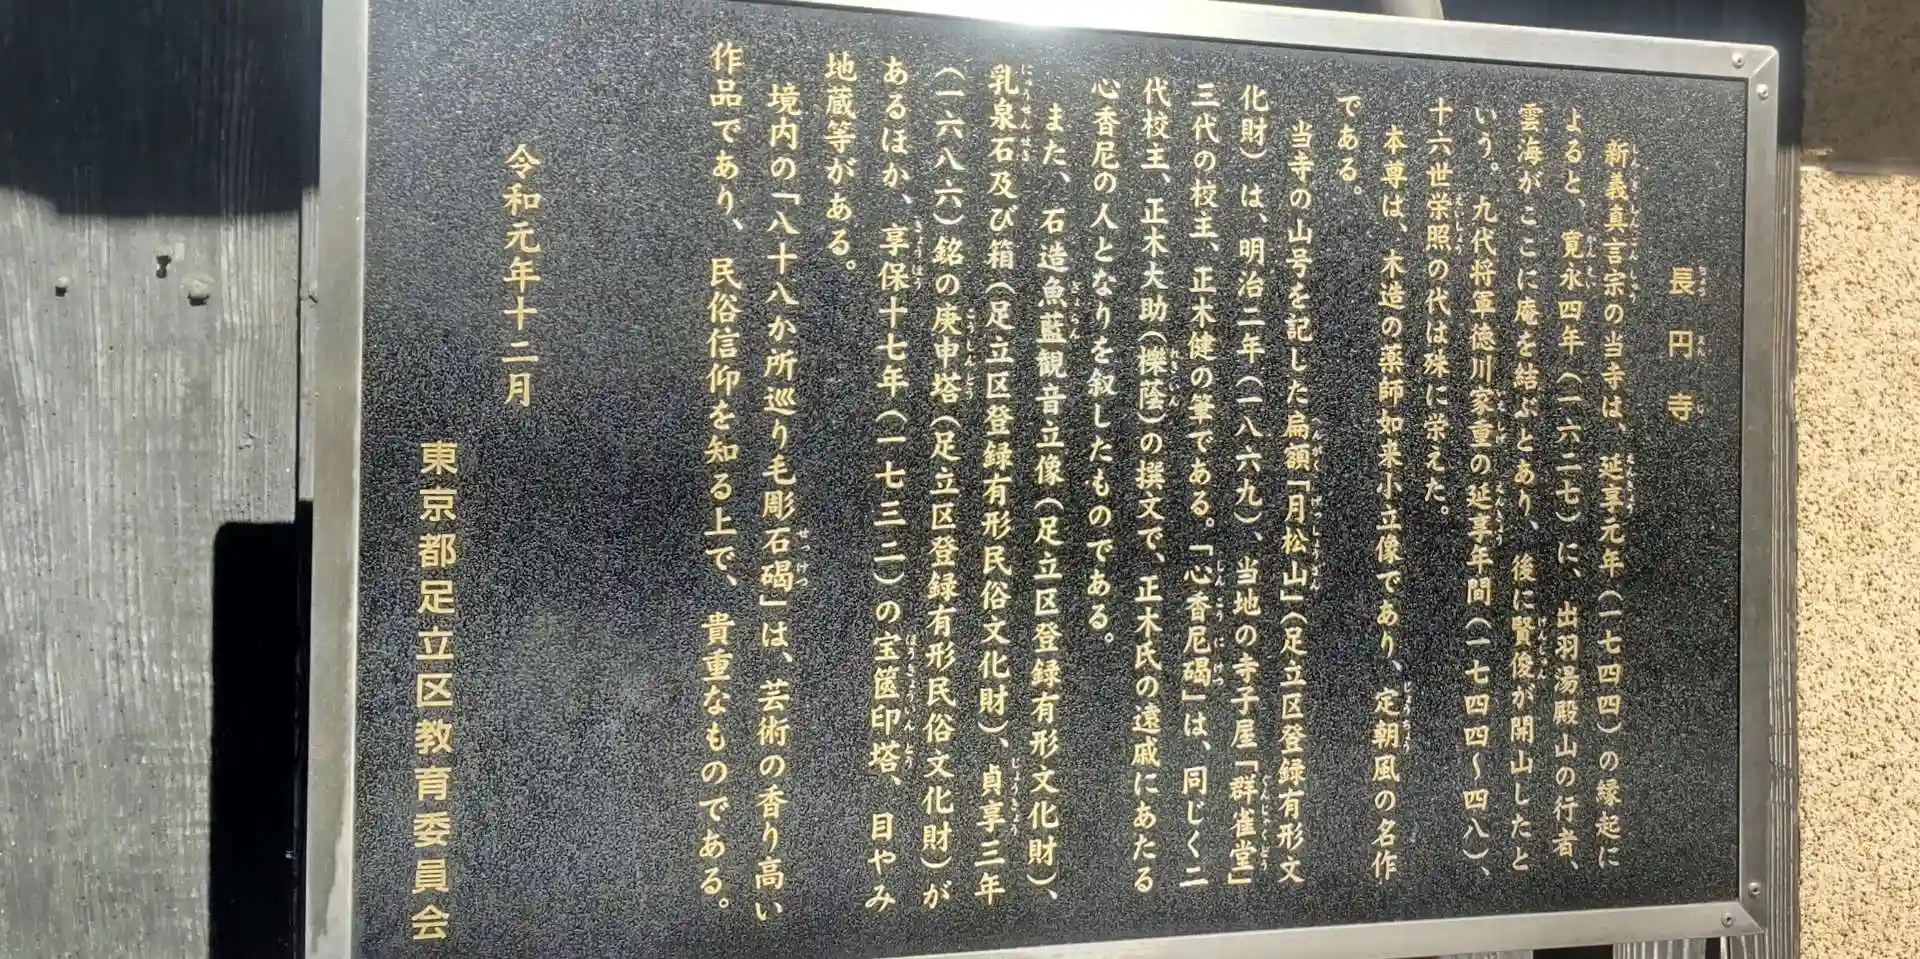 長円寺
新義真言宗の当寺は、延享元年（一七四四）の縁起に
よると、寛永四年（一六二七）に、出羽湯殿山の行者、
雲海がここに庵を結ぶとあり、後に賢俊が開山したと
いう。九代将軍徳川家重の延享年間（一七四四～四八）、
十六世栄照の代は殊に栄えた。
本尊は、木造の薬師如来小立像であり、定朝風の名作
である。
当寺の山号を記した扁額「月松山」（足立区登録有形文
化財）は、明治二年（一八六九）、当地の寺子屋「群雀堂」
三代の校主、正木健の筆である。「心香尼碣」は、同じく二
代校主、正木大助（櫟蔭）の撰文で、正木氏の遠戚にあたる
心香尼の人となりを叙したものである。
また、石造魚藍観音立像（足立区登録有形文化財）、
乳泉石及び箱（足立区登録有形民俗文化財）、貞享三年
（一六八六）銘の庚申塔（足立区登録有形民俗文化財）が
あるほか、享保十七年（一七三二）の宝篋印塔、目やみ
地蔵等がある。
境内の「八十八か所巡り毛彫石碣」は、芸術の香り高い
作品であり、民俗信仰を知る上で、貴重なものである。
令和元年十二月
東京都足立区教育委員会